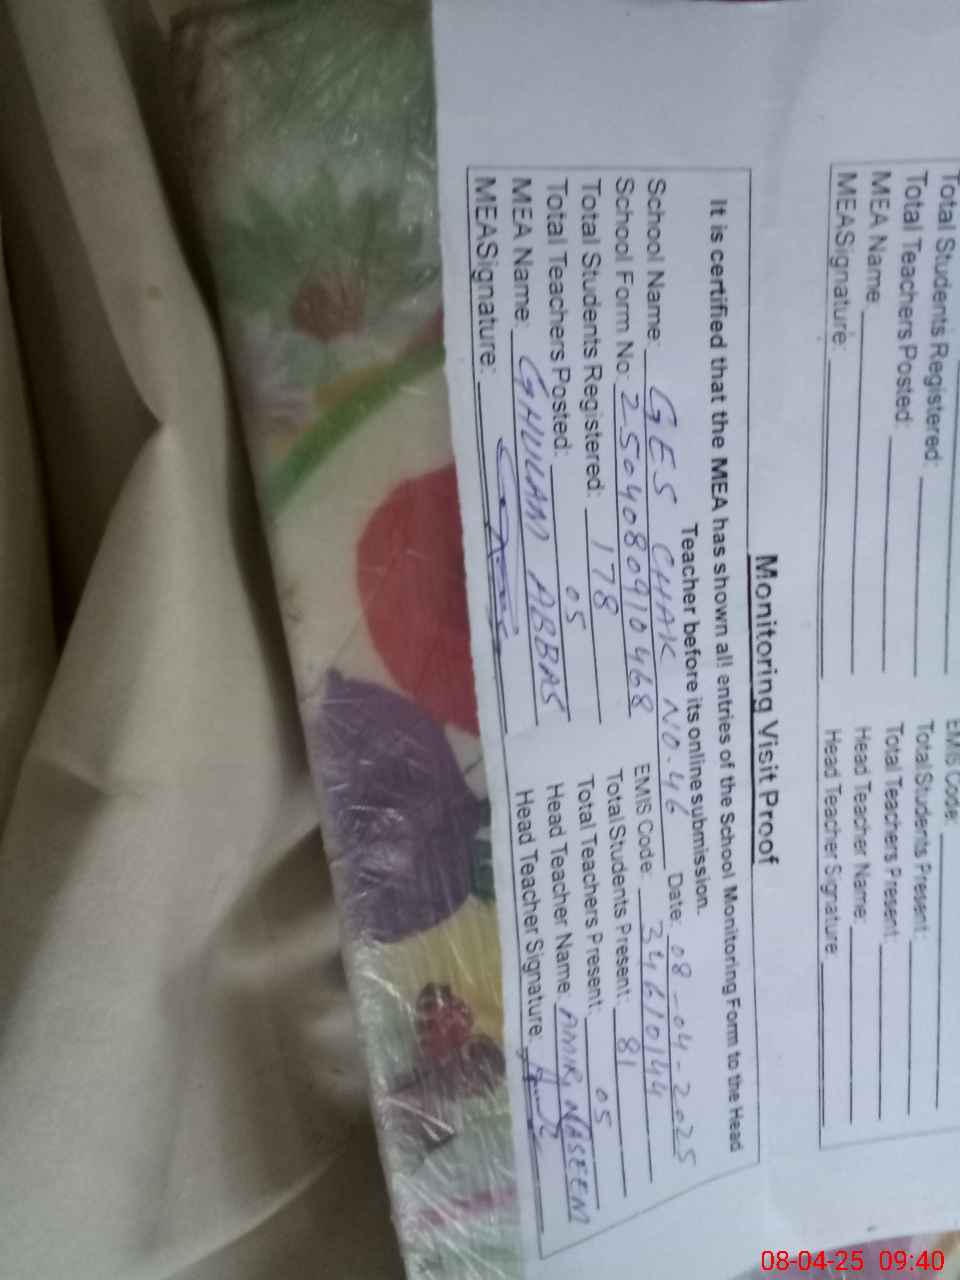 Total Students Registered:
EMIS Code:
Total Teachers Posted: Total Students Present:
MEA Name: Total Teachers Present:
MEASignature: Head Teacher Name:
Head Teacher Signature:
Monitoring Visit Proof
It is certified that the MEA has shown all entries of the School Monitoring Form to the Head
Teacher before its online submission.
School Name: GES CHAK NO-46 Date: 08-04-2025
School Form No: 2504080910468 EMIS Code: 34610144
Total Students Registered: 178 Total Students Present: 81
Total Teachers Posted: 05 Total Teachers Present: 05
MEA Name: GHULAM ABBAS Head Teacher Name: AMIR NASEEM
MEASignature: Head Teacher Signature:
08-04-25 09:40